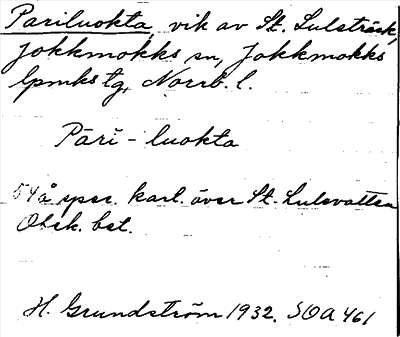 Pariluokta, vik av St. Lulesträsk,
Jokkmokks sn, Jokkmokks
lpmks tg, Norrb. l.
Pāri - luokta
54 å spec. karl. över St. Lulevatten
Obek. bet.
H. Grundström 1932. SOA 461